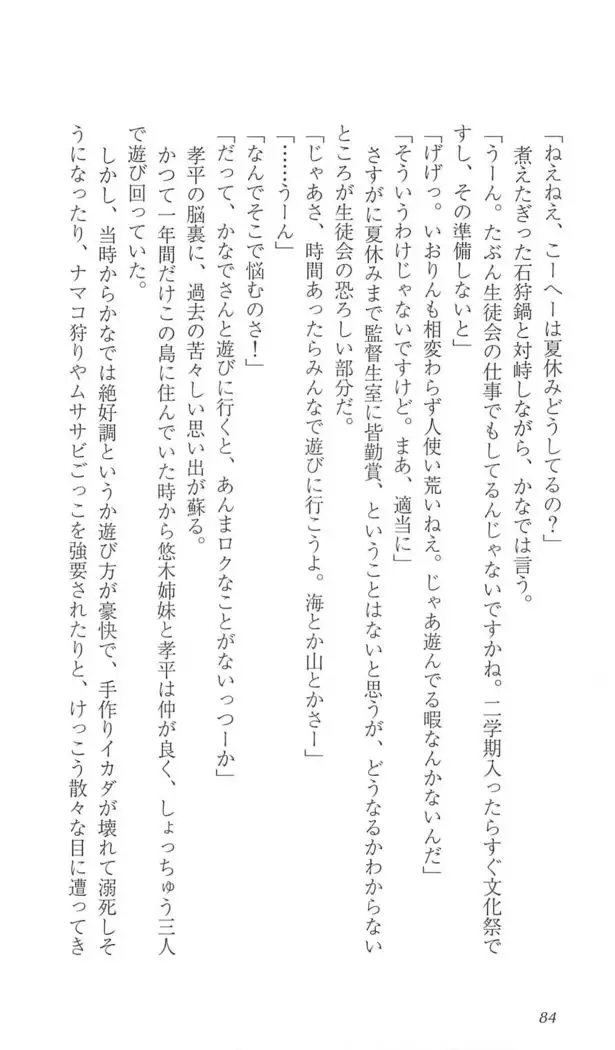 「ねえねえ、こーへーは夏休みどうしてるの？」
煮えたぎった石狩鍋と対峙しながら、かなでは言う。
「うーん。たぶん生徒会の仕事でもしてるんじゃないですかね。二学期入ったらすぐ文化祭で
すし、その準備しないと」
「げげっ。いおりんも相変わらず人使い荒いねえ。じゃあ遊んでる暇なんかないんだ」
「そういうわけじゃないですけど。まあ、適当に」
さすがに夏休みまで監督生室に皆勤賞、ということはないと思うが、どうなるかわからない
ところが生徒会の恐ろしい部分だ。
「じゃあさ、時間あったらみんなで遊びに行こうよ。海とか山とかさー」
「……うーん」
「なんでそこで悩むのさ！」
「だって、かなでさんと遊びに行くと、あんまロクなことがないっつーか」
孝平の脳裏に、過去の苦々しい思い出が蘇る。
かつて一年間だけこの島に住んでいた時から悠木姉妹と孝平は仲が良く、しょっちゅう三人
で遊び回っていた。
しかし、当時からかなでは絶好調というか遊び方が豪快で、手作りイカダが壊れて溺死しそ
うになったり、ナマコ狩りやムササビごっこを強要されたりと、けっこう散々な目に遭ってき
84